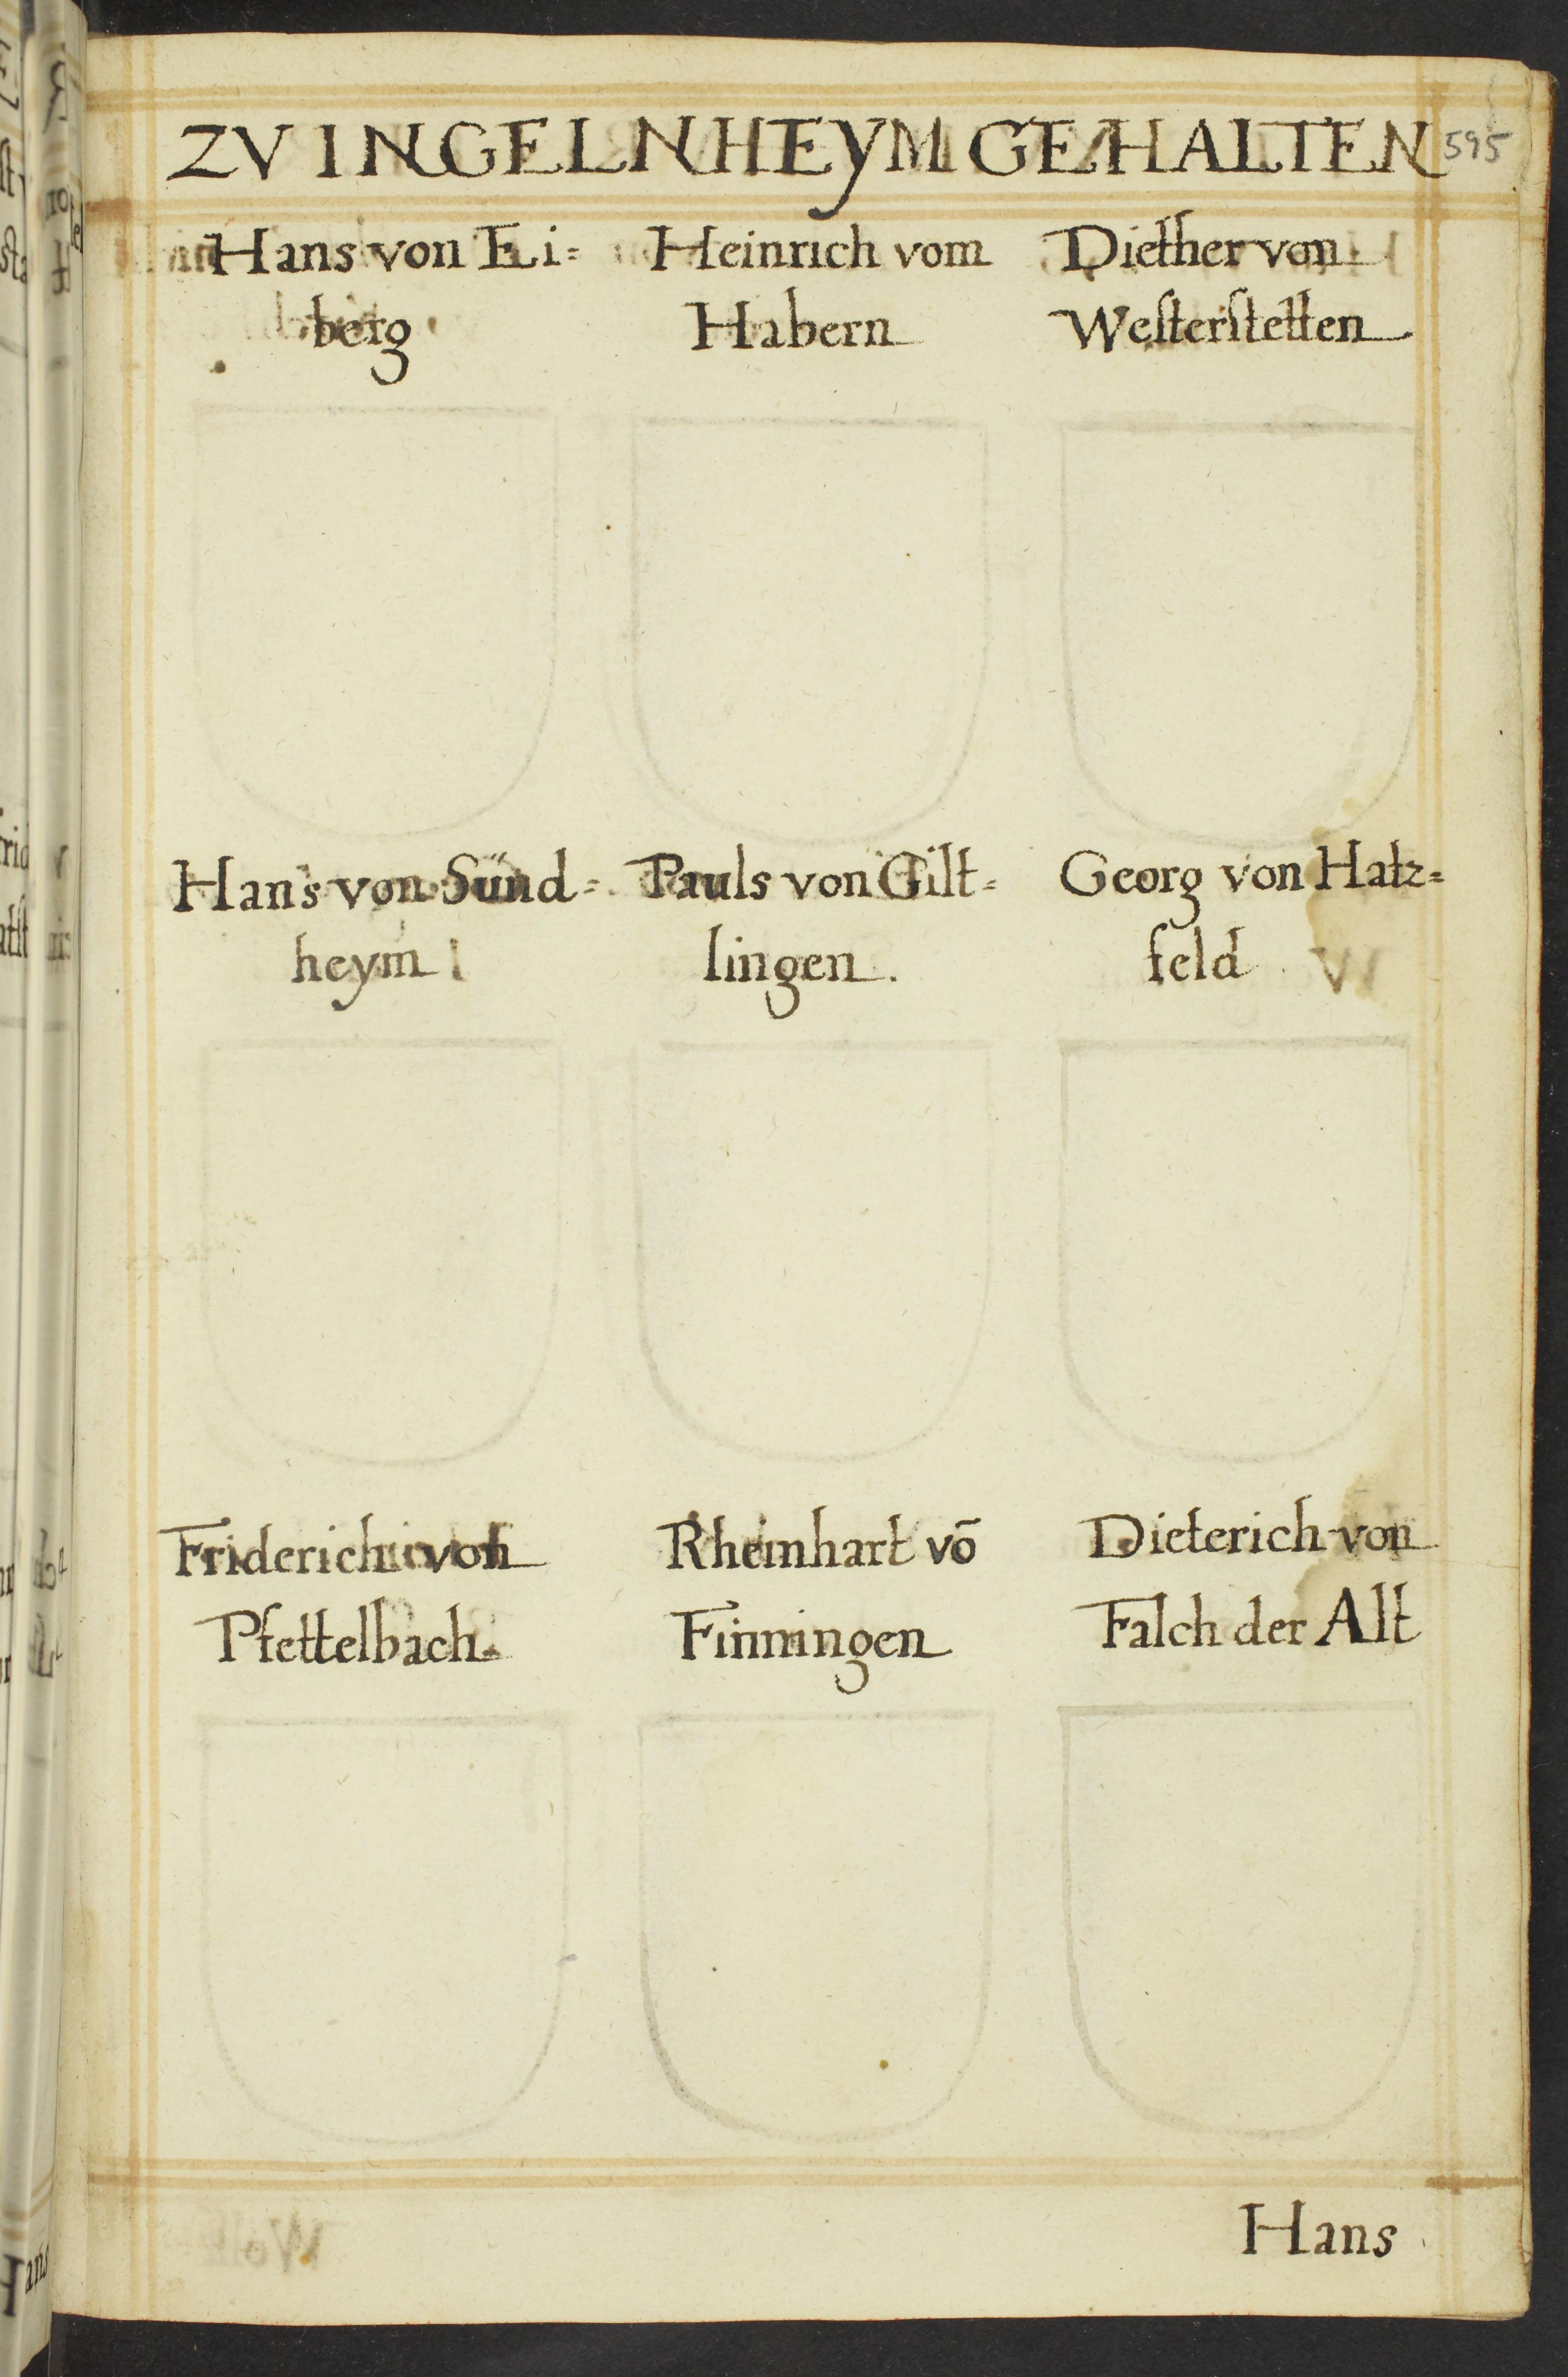 ZV INGELNHEYM GEHALTEN 595
Hans von Ei=
berg
Heinrich vom
Habern
Diether von
Weſterſtetten
Hans von Sünd=
heym
Pauls von Gilt=
lingen.
Georg von Hatz=
feld
Friderich von
Pfettelbach.
Rheinhart võ
Finningen
Dieterich von
Falch der Alt
Hans